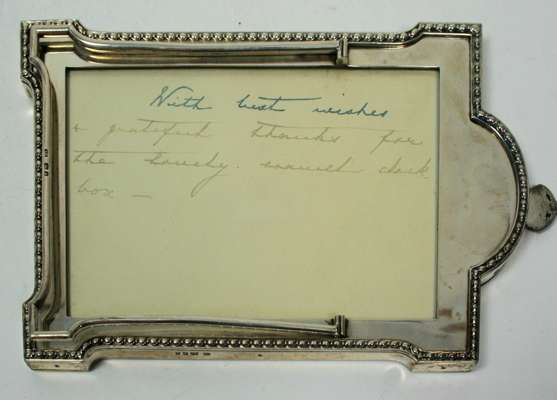 With best wishes
& grateful thanks for
the lovely enamel clock
box —